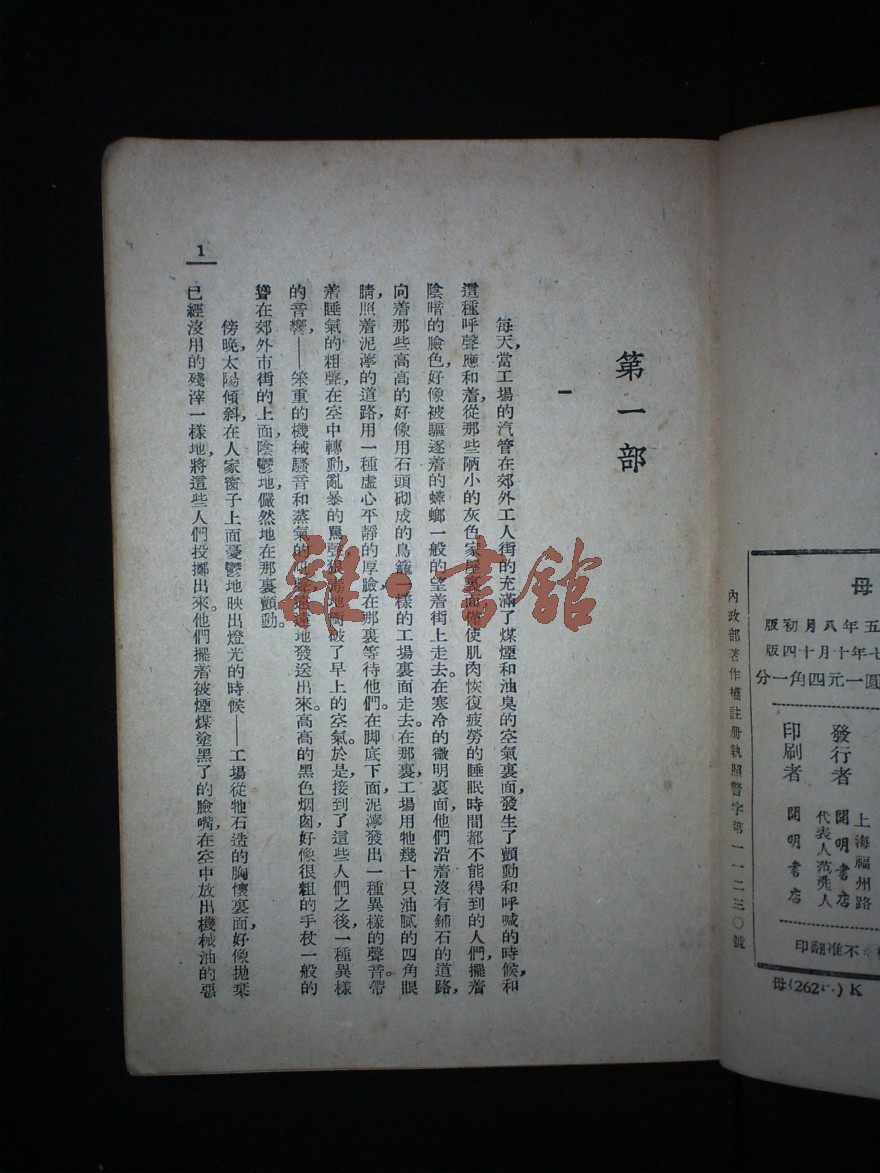 母
五年八月初版
七年十月十四版
圓一元四角一分
上海福州路
發行者 開明書店
代表人范洗人
印刷者 開明書店
不准翻印
母(262 .) K
內政部著作權註册執照警字第一一二三〇號
第一部
一
每天,當工場的汽管在郊外工人街的充滿了煤煙和油臭的空氣裏面,發生了顫動和呼喊的時候,和
這種呼聲應和着,從那些陋小的灰色家屋裏面,僅使肌肉恢復疲勞的睡眠時間都不能得到的人們,擺着
陰暗的臉色,好像被驅逐着的蟑螂一般的望着街上走去。在寒冷的微明裏面,他們沿着沒有鋪石的道路,
向着那些高高的好像用石頭砌成的鳥籠一樣的工場裏面走去。在那裏,工場用牠幾十只油膩的四角眼
睛,照着泥濘的道路,用一種虛心平靜的厚臉在那裏等待他們。在脚底下面,泥濘發出一種異樣的聲音。帶
着睡氣的粗聲,在空中轉動,亂暴的罵聲地衝破了早上的空氣。於是,接到了這些人們之後,一種異樣
的音響——笨重的機械騷音和蒸氣的地發送出來。高高的黑色烟囱,好像很粗的手杖一般的
聳在郊外市街的上面,陰鬱地儼然地在那裏顫動。
傍晚,太陽傾斜,在人家窗子上面憂鬱地映出燈光的時候——工場從牠石造的胸懷裏面,好像拋棄
已經沒用的殘滓一樣地,將這些人們投擲出來。他們擺着被煙煤塗黑了的臉嘴,在空中放出機械油的惡
1
雜·書館